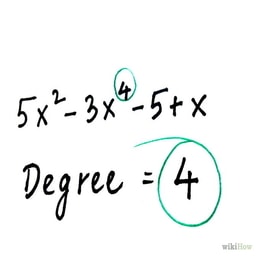 5x² - 3x⁴ - 5 + x
Degree = 4
wikiHow